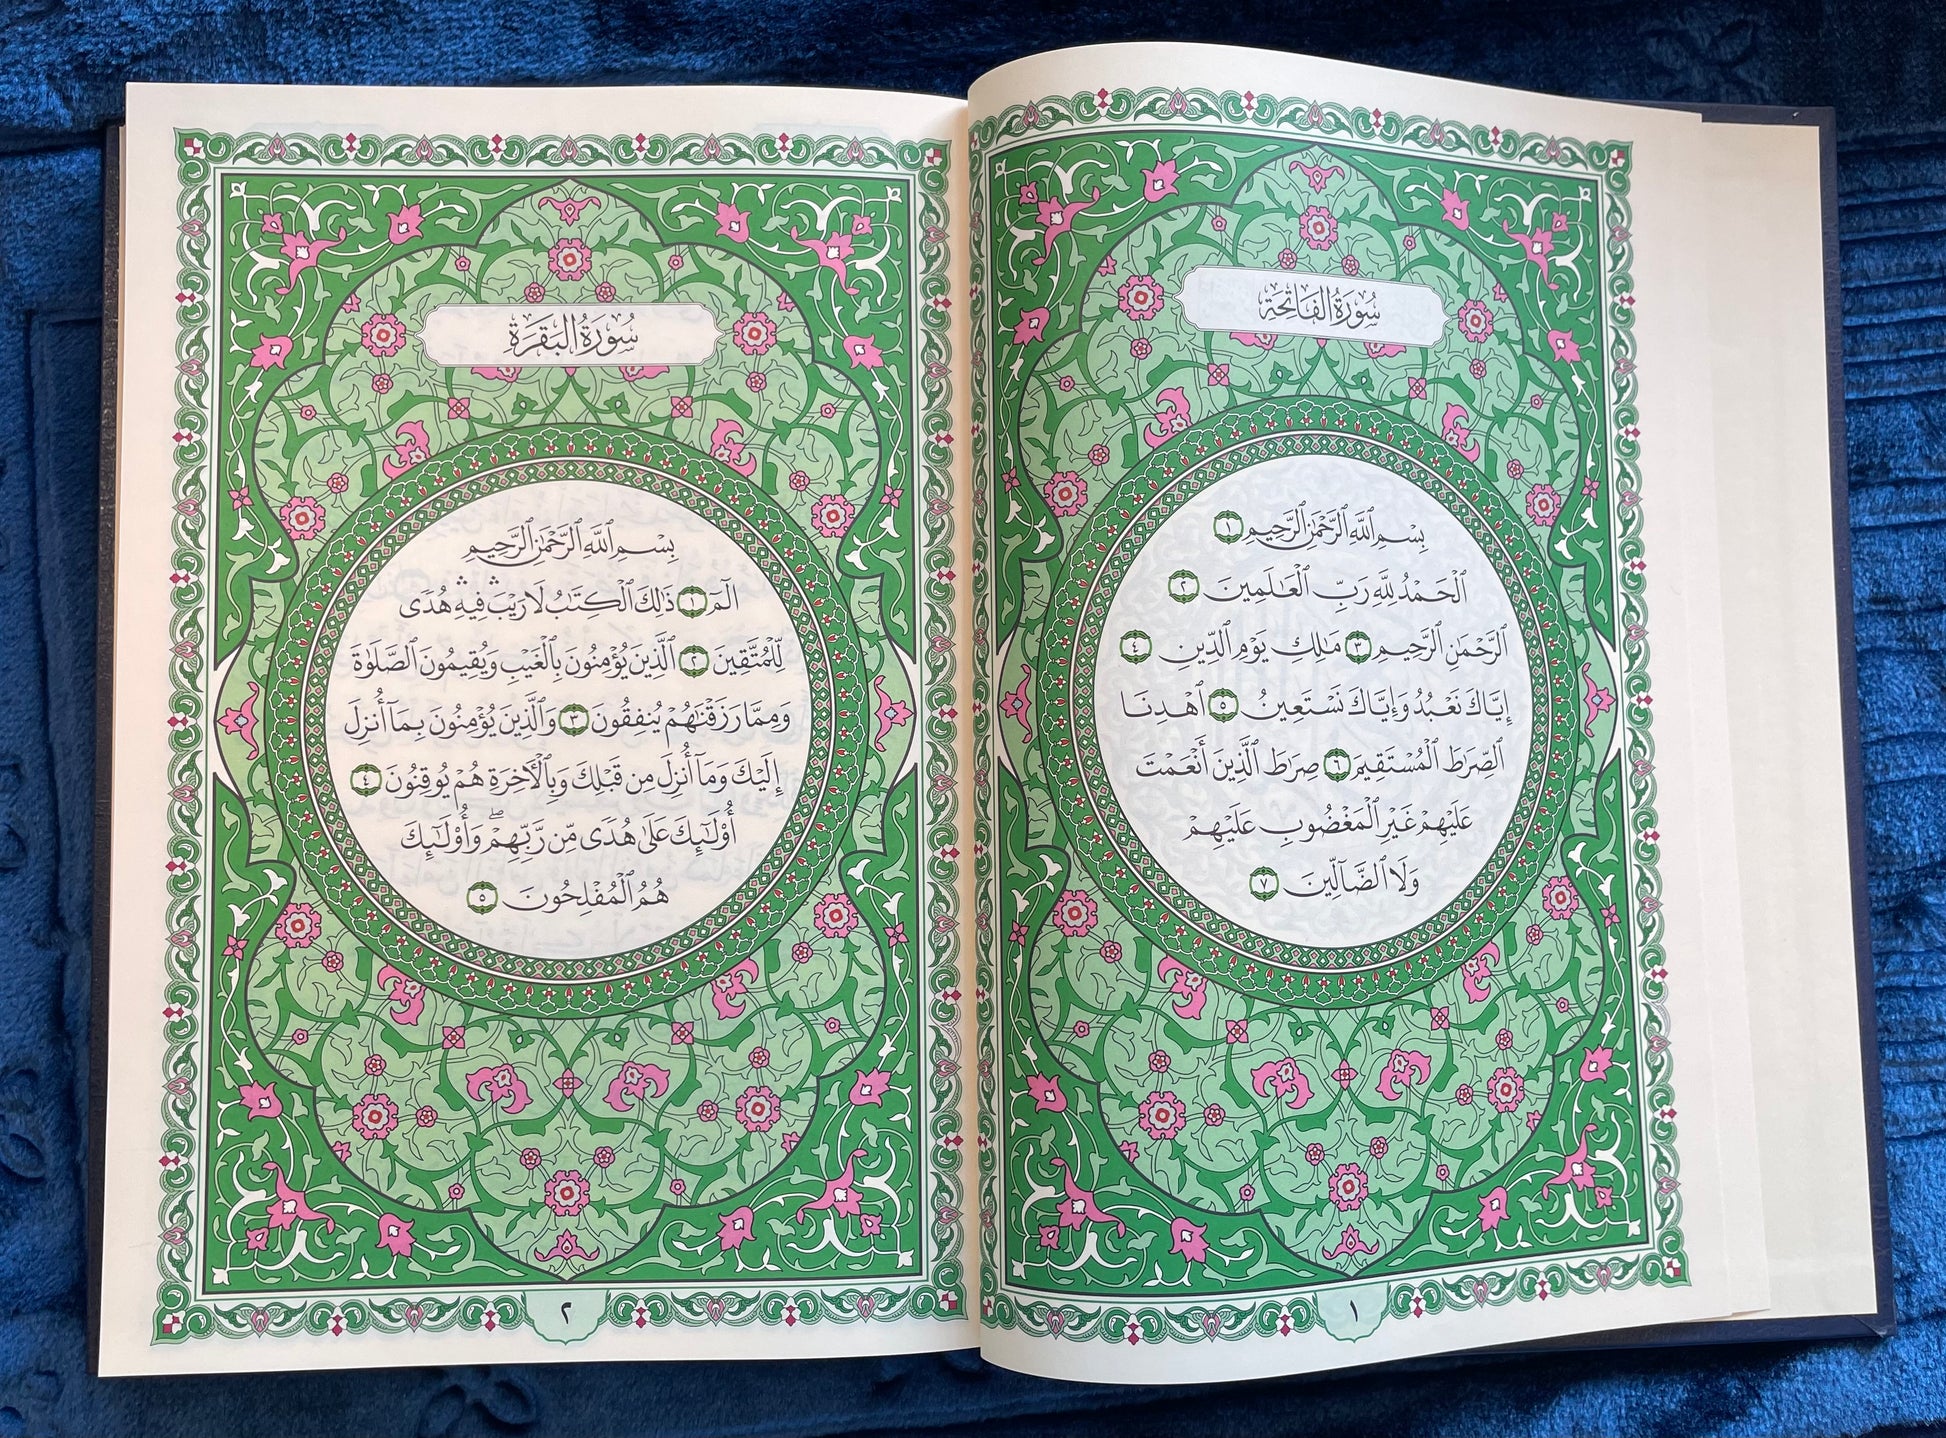 سُورَةُ الْفَاتِحَةِ
بِسْمِ ٱللَّهِ ٱلرَّحْمَٰنِ ٱلرَّحِيمِ ١
ٱلْحَمْدُ لِلَّهِ رَبِّ ٱلْعَٰلَمِينَ ٢
ٱلرَّحْمَٰنِ ٱلرَّحِيمِ ٣ مَٰلِكِ يَوْمِ ٱلدِّينِ ٤
إِيَّاكَ نَعْبُدُ وَإِيَّاكَ نَسْتَعِينُ ٥ ٱهْدِنَا
ٱلصِّرَٰطَ ٱلْمُسْتَقِيمَ ٦ صِرَٰطَ ٱلَّذِينَ أَنْعَمْتَ
عَلَيْهِمْ غَيْرِ ٱلْمَغْضُوبِ عَلَيْهِمْ
وَلَا ٱلضَّآلِّينَ ٧
١
سُورَةُ الْبَقَرَةِ
بِسْمِ ٱللَّهِ ٱلرَّحْمَٰنِ ٱلرَّحِيمِ
الٓمٓ ١ ذَٰلِكَ ٱلْكِتَٰبُ لَا رَيْبَۛ فِيهِۛ هُدًى
لِّلْمُتَّقِينَ ٢ ٱلَّذِينَ يُؤْمِنُونَ بِٱلْغَيْبِ وَيُقِيمُونَ ٱلصَّلَوٰةَ
وَمِمَّا رَزَقْنَٰهُمْ يُنفِقُونَ ٣ وَٱلَّذِينَ يُؤْمِنُونَ بِمَآ أُنزِلَ
إِلَيْكَ وَمَآ أُنزِلَ مِن قَبْلِكَ وَبِٱلْأَخِرَةِ هُمْ يُوقِنُونَ ٤
أُوْلَٰٓئِكَ عَلَىٰ هُدًى مِّن رَّبِّهِمْۖ وَأُوْلَٰٓئِكَ
هُمُ ٱلْمُفْلِحُونَ ٥
٢